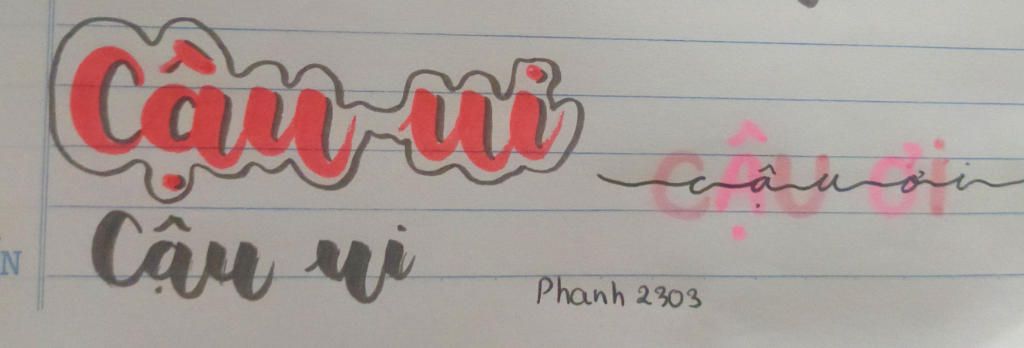 Cậu ui
CẬU ơi
cậu ơi
Cậu ui
Phanh 2303
N